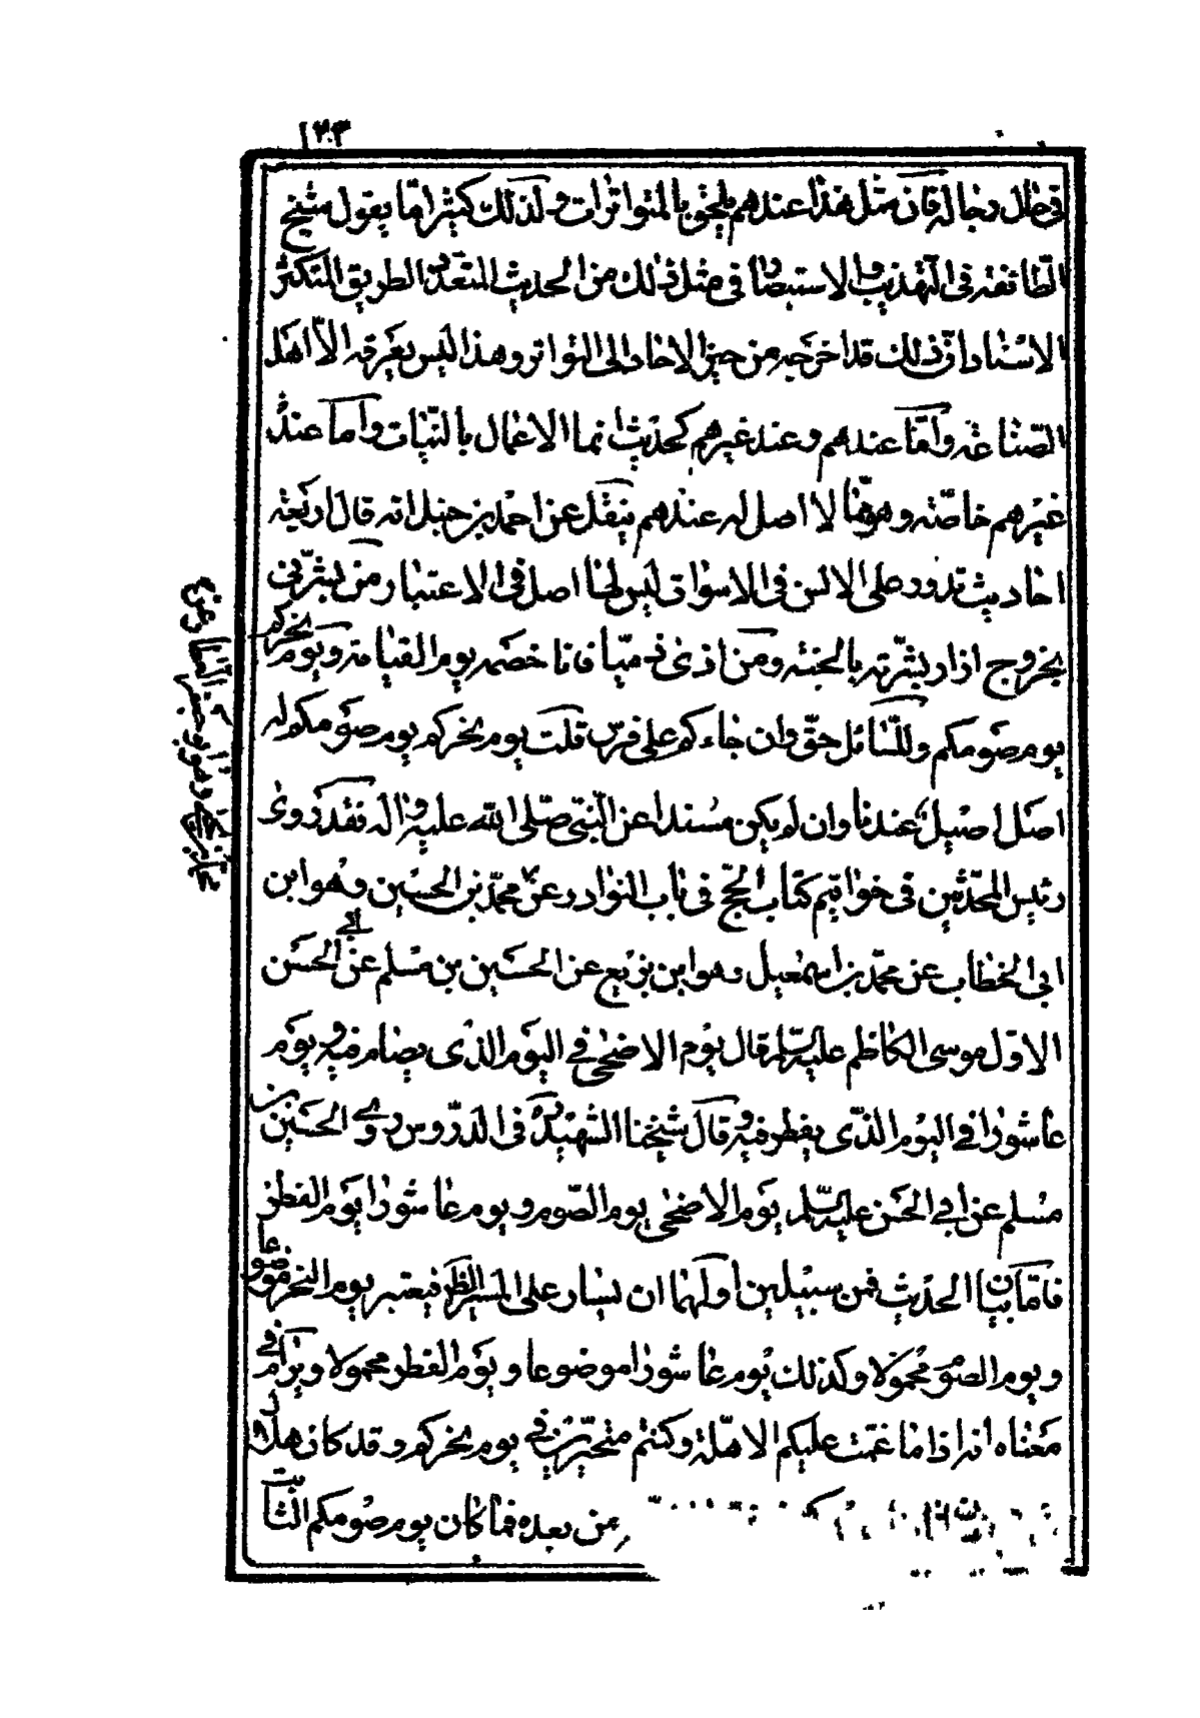 ١٢٣
فى حال رجاله فان مثل هذا عندهم يلحق بالمتواترات ولذلك كثيرا ما يقول شيخ
الطائفة فى التهذيب والاستبصار فى مثل ذلك من الحديث المتعدد الطريق المتكثر
الاسناد ان ذلك قد اخرجه من حيز الاحاد الى التواتر وهذا ليس يعرفه الا اهل
الصناعة واما عندهم وعند غيرهم كحديث انما الاعمال بالنيات واما عند
غيرهم خاصة وهو مما لا اصل له عندهم ينقل عن احمد بن حنبل انه قال اربعة
احاديث تدور على الالسن فى الاسواق ليس لها اصل فى الاعتبار من بشرنى
بخروج اذار بشرته بالجنة ومن اذى ذميا فانا خصمه يوم القيامة ويوم نحركم
يوم صومكم وللسائل حق وان جاءكم على فرس قلت يوم نحركم يوم صومكم له
اصل اصيل عندنا وان لم يكن مسندا عن النبى صلى الله عليه واله فقد روى
رئيس المحدثين فى خواتيم كتاب الحج فى باب النوادر عن محمد بن الحسين وهو ابن
ابى الخطاب عن محمد بن اسمعيل وهو ابن بزيع عن الحسين بن مسلم عن ابى الحسن
الاول موسى الكاظم عليه السلم قال يوم الاضحى فى اليوم الذى يصام فيه ويوم
عاشورا فى اليوم الذى يفطر فيه وقال شيخنا الشهيد فى الدروس روى الحسين بن
مسلم عن ابى الحسن عليه السلم يوم الاضحى يوم الصوم ويوم عاشورا يوم الفطر
فاما بيان الحديث فمن سبيلين اولهما ان يسار على المسير الظر فيعتبر يوم النحر موضوعا
ويوم الصوم محمولا وكذلك يوم عاشورا موضوعا ويوم الفطر محمولا ويرام فى
معناه انه اذا ما غمت عليكم الاهلة وكنتم متحيرين فى يوم نحركم وقد كان هلال
من بعده فما كان يوم صومكم الثابت